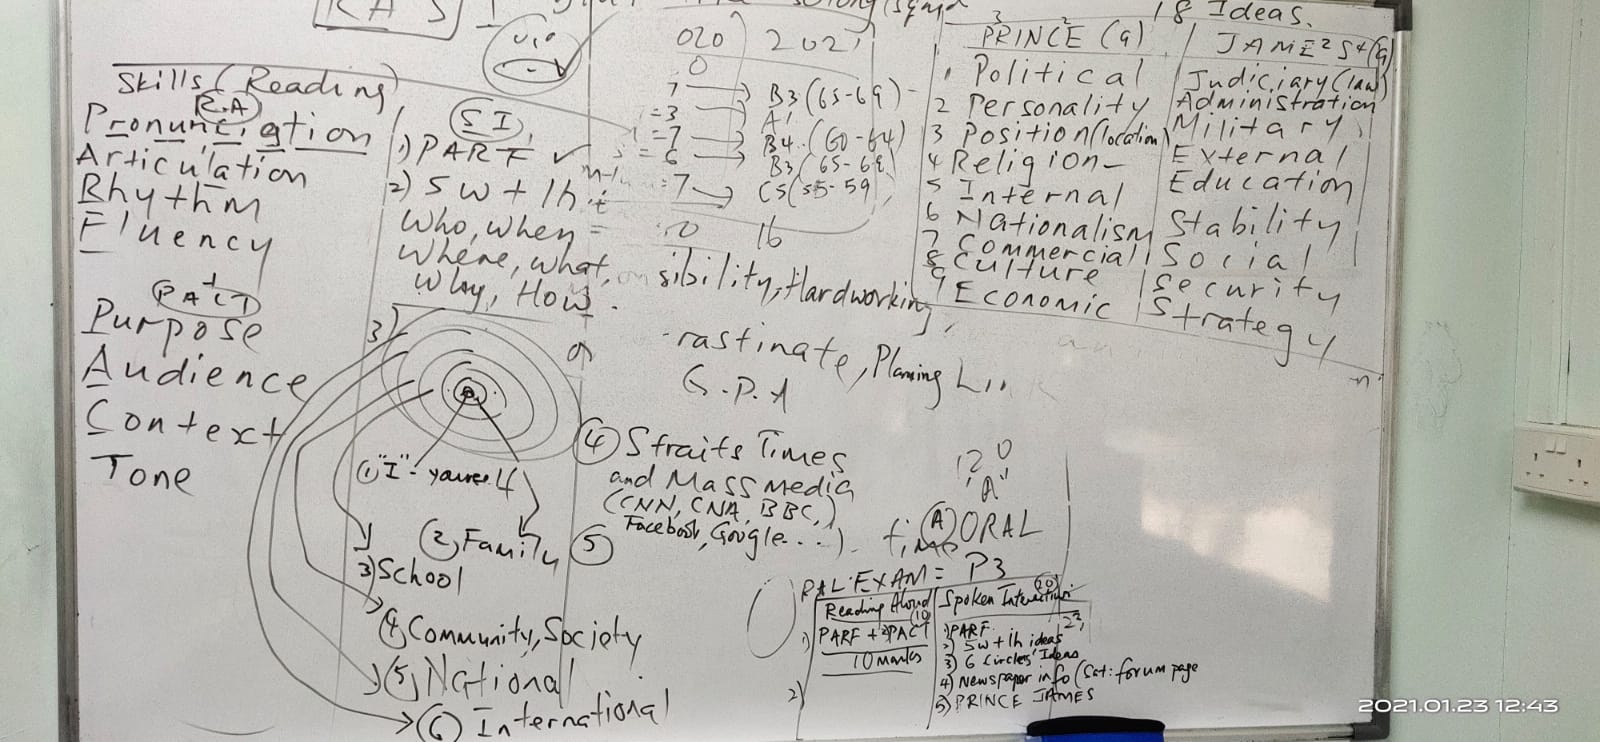 18 Ideas.
Skills (Reading)
R.A
Pronunciation
Articulation
Rhythm
Fluency
PACT
Purpose
Audience
Context
Tone
S I
1) PARF ✓
2) 5w + 1h
Who, when
Where, what,
Why, How.
3)
① "I" - yourself
② Family
3) School
④ Community, Society
⑤ National
⑥ International
020 2021
0
7 → B3 (65-69)
=3 → A1
=7 → B4 (60-64)
=6 → B3 (65-69)
=7 → C5 (55-59
16
sibility, Hardworking,
rastinate, Planning
G.P.A
④ Straits Times
and Mass media
(CNN, CNA, BBC,)
Facebook, Google...).
⑤
PRINCE (9)
1 Political
2 Personality
3 Position (location)
4 Religion
5 Internal
6 Nationalism
7 Commercial
8 Culture
9 Economic
JAME²S⁴ (9)
Judiciary (law)
Administration
Military
External
Education
Stability
Social
Security
Strategy
(A) ORAL
EXAM = P3
Reading Aloud (10)
1) PARF + PACT
10 marks
2)
Spoken Interaction (20)
1) PARF
2) 5w + 1h ideas
3) 6 Circles' Ideas
4) Newspaper info (Sat: forum page
5) PRINCE JAMES
2021.01.23 12:43